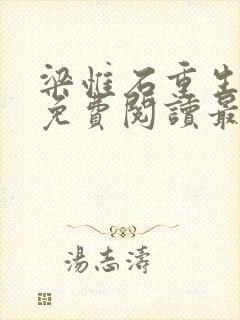 梁惟石重生
免費閱讀最
湯志濤